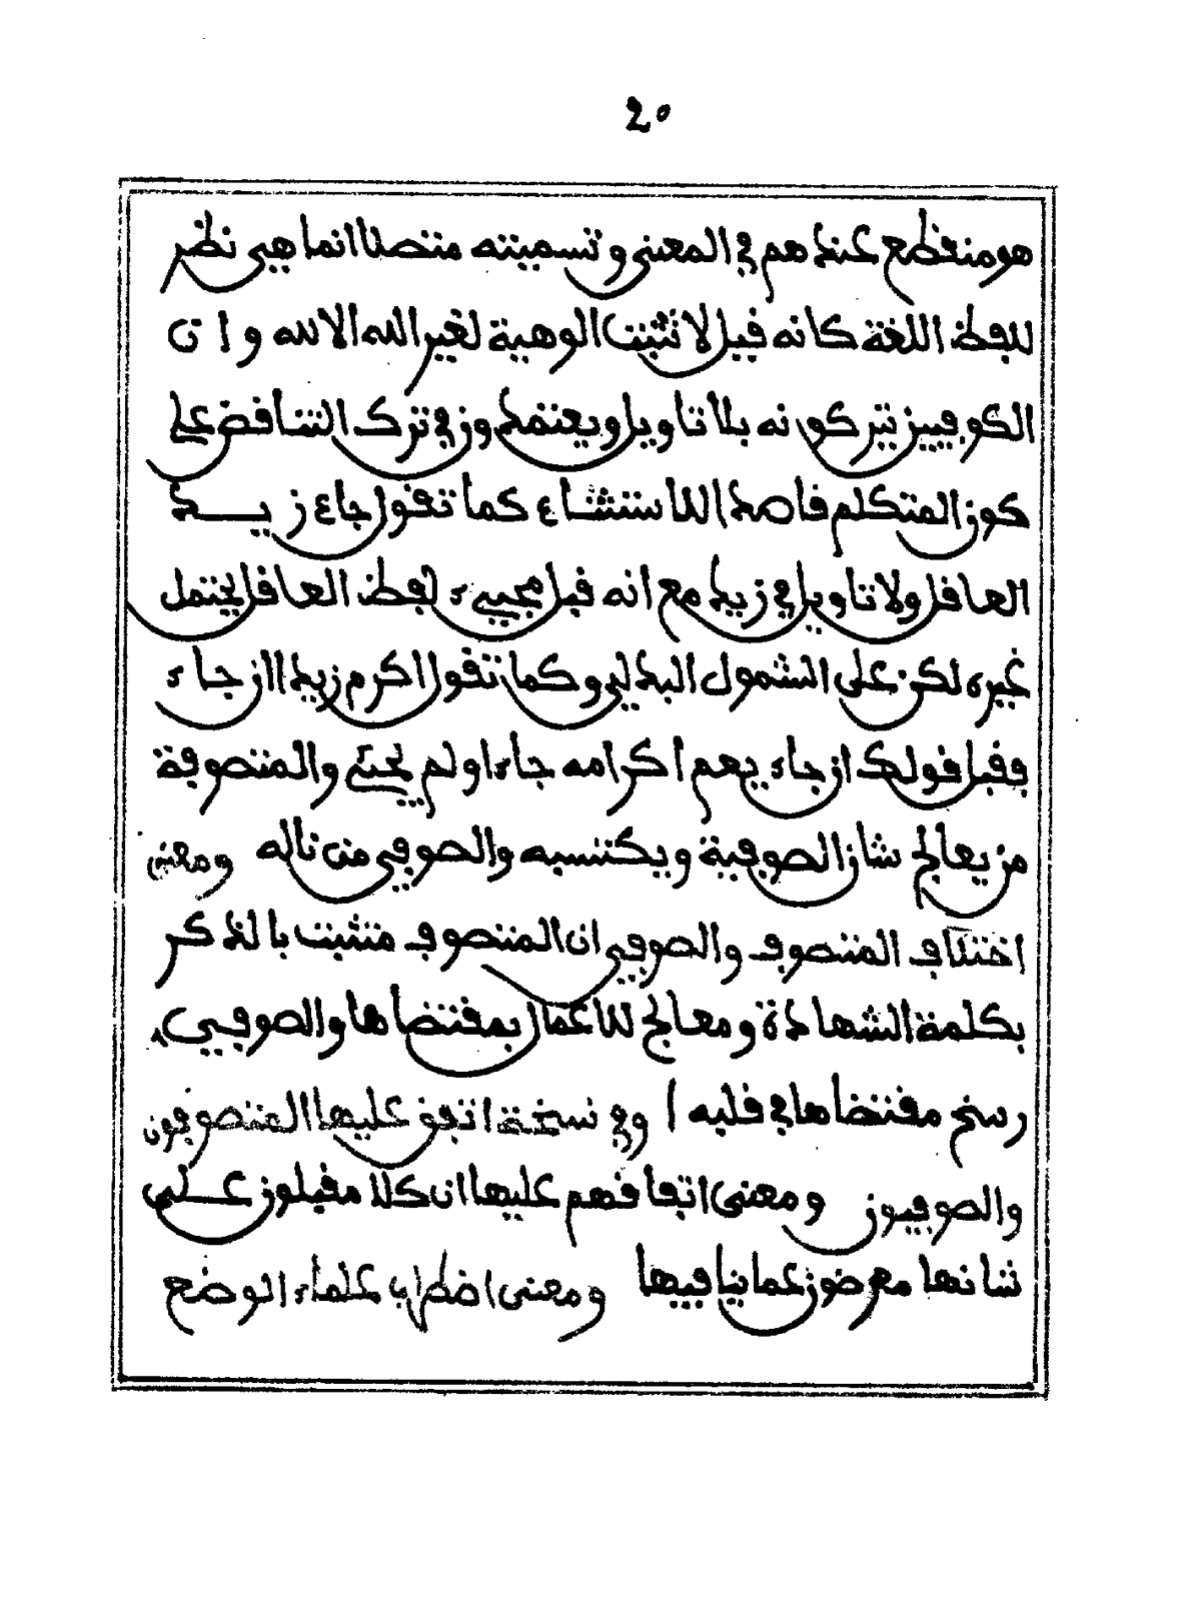 20
هو منقطع عندهم في المعنى وتسميته متصلا انما هي نظر
للفظ اللغة كانه قيل لا تثبت الوهية لغير الله الا لله وان
الكوفيين يتركونه بلا تاويل ويعتمدون في ترك التناقض على
كون المتكلم قاصدا للاستثناء كما تقول جاء زيد
العاقل ولا تاويل في زيد مع انه قبل مجيء لفظ العاقل يحتمل
غيره لكن على الشمول البدلي وكما تقول اكرم زيدا ان جاء
فقبل قولك ان جاء يعم اكرامه جاء او لم يجئ والمتصوفة
من يعالج شان الصوفية ويكتسبه والصوفي من ناله ومعنى
اختلاف المتصوف والصوفي ان المتصوف متثبت بالذكر
بكلمة الشهادة ومعالج للاعمال بمقتضاها والصوفي
رسخ مقتضاها في قلبه ا وفي نسخة اتفق عليها المتصوفون
والصوفيون ومعنى اتفاقهم عليها ان كلا مقبلون على
شانها معرضون عما ينافيها ومعنى اضطراب علماء الوضع